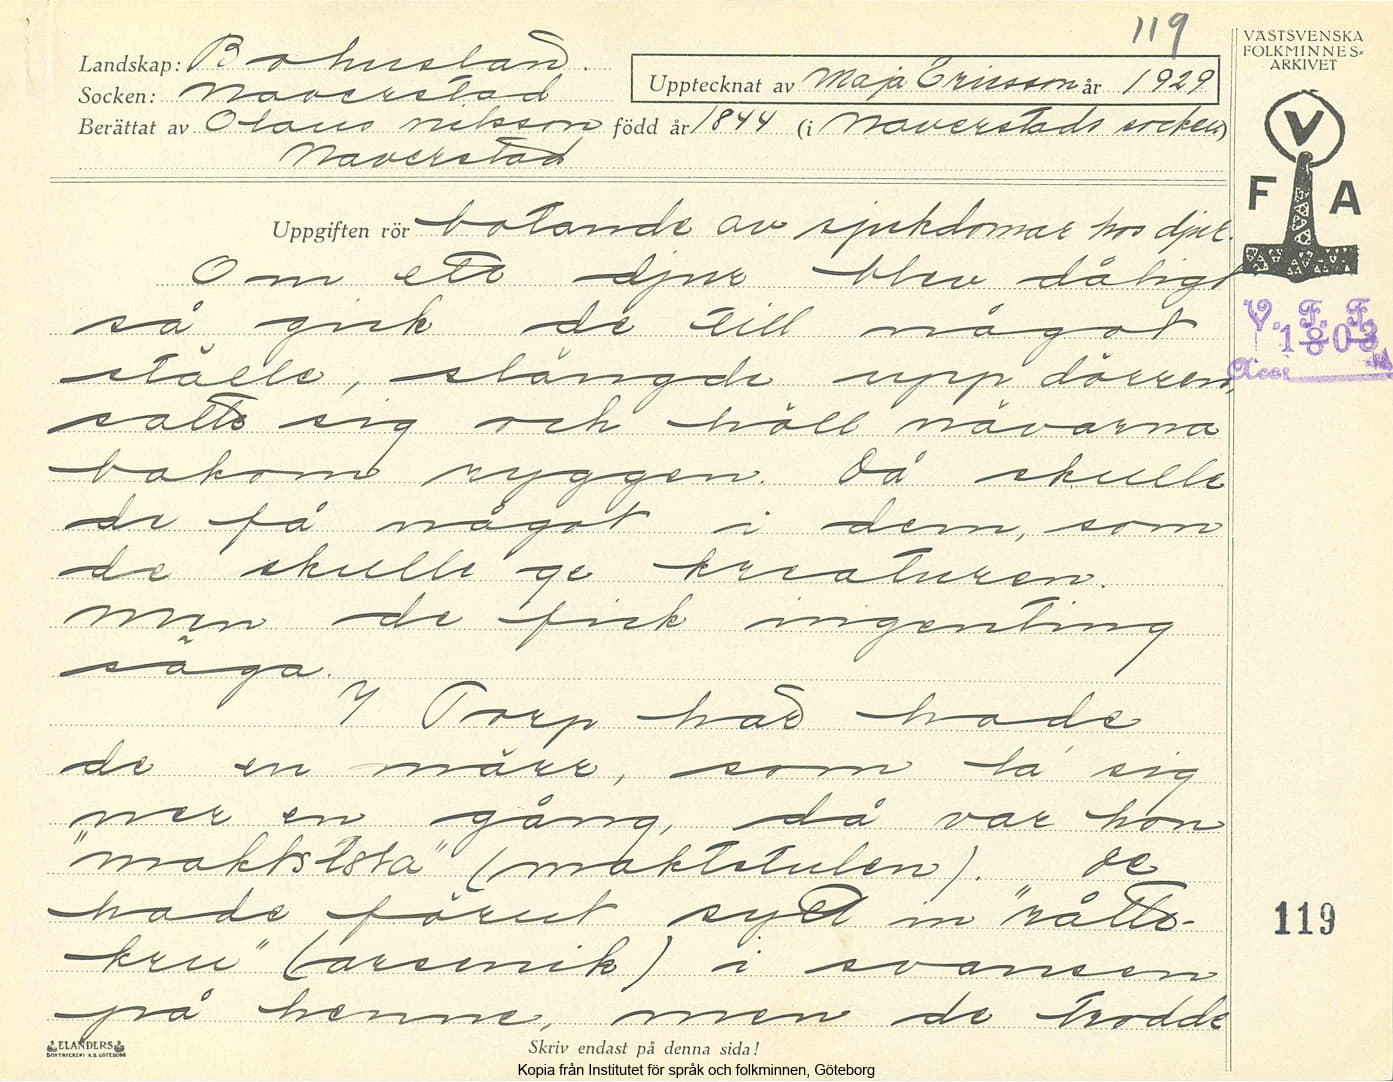 119
Landskap: Bohuslän.
Socken: Naverstad
Upptecknat av Maja Ericsson år 1929
Berättat av Olaus Nilsson född år 1844 (i Naverstads socken)
Naverstad
VÄSTSVENSKA
FOLKMINNES-
ARKIVET
V
F A
V. F. F.
1803
Acc:
Uppgiften rör botande av sjukdomar hos djur.
Om ett djur blev dåligt
så gick de till något
ställe, slängde upp dörren,
satte sig och höll nävarna
bakom ryggen. Då skulle
de få något i dem, som
de skulle ge kreaturen.
Men de fick ingenting
säga.
I Torp had hade
de en märr, som la sig
ner en gång, då var hon
"maktstôta" (maktstulen). De
hade förut sytt in "råtte-
kru" (arsenik) i svansen
på henne, men de trodde
119
ELANDERS
BOKTRYCKERI A.B. GÖTEBORG
Skriv endast på denna sida!
Kopia från Institutet för språk och folkminnen, Göteborg